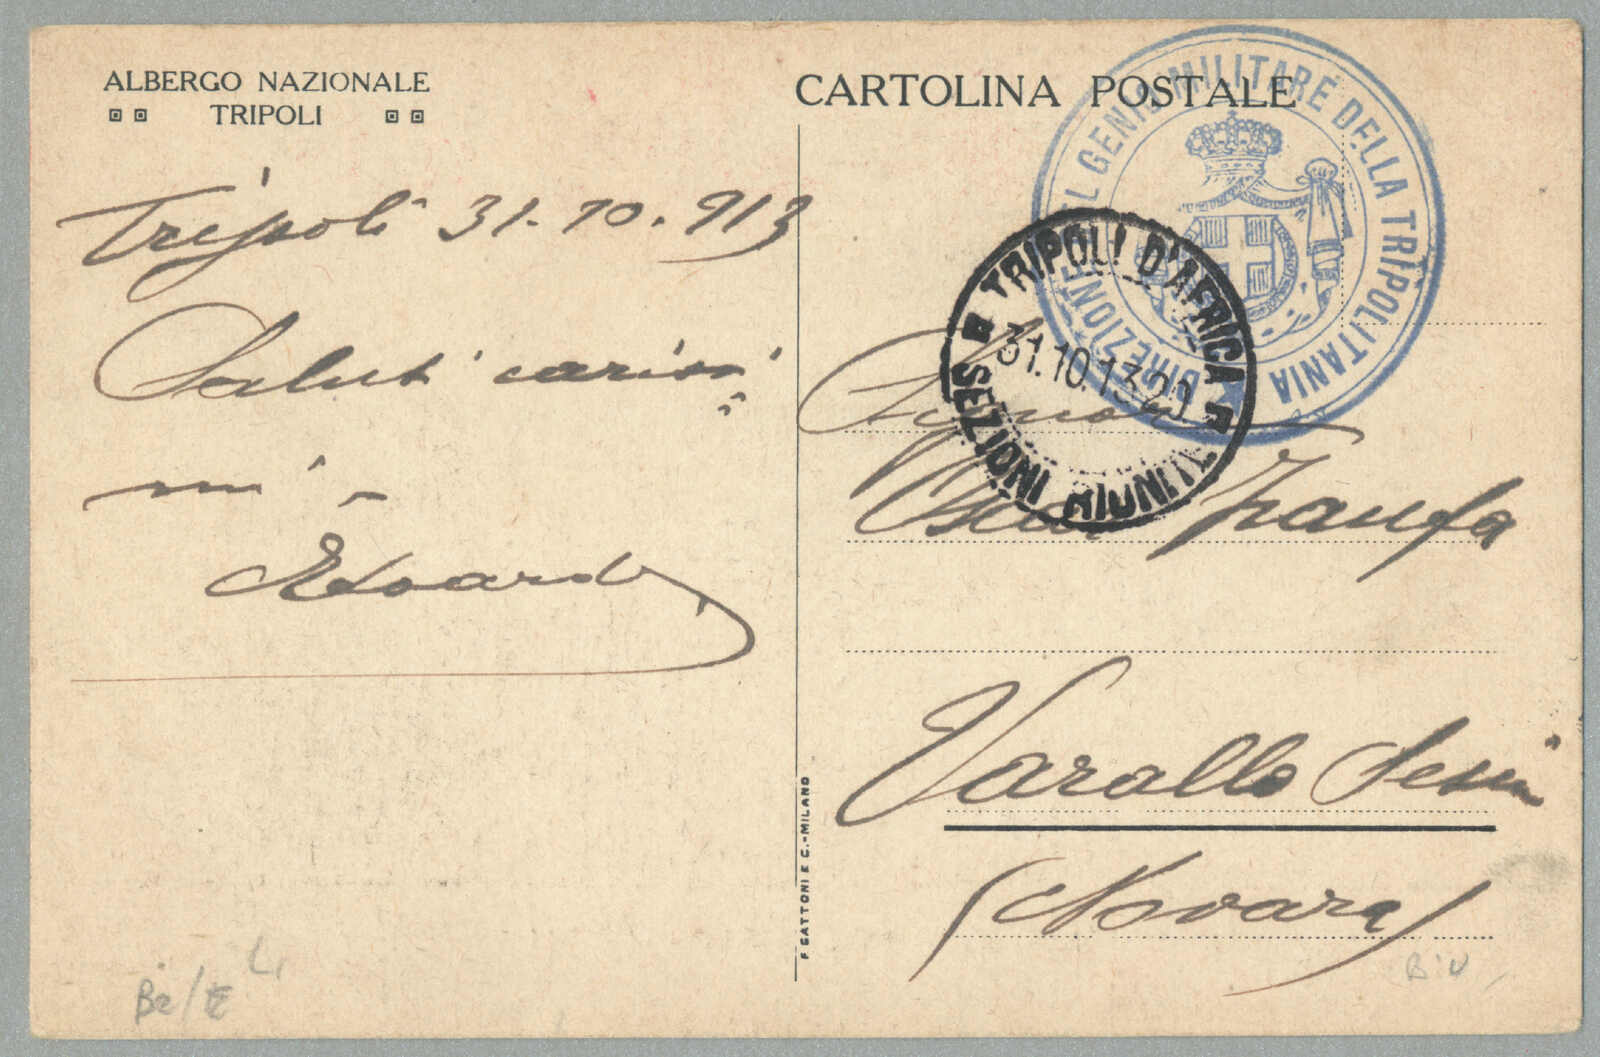 ALBERGO NAZIONALE
TRIPOLI
Tripoli 31.10.913
Saluti carissi
mi
Edoardo
CARTOLINA POSTALE
DIREZIONE DEL GENIO MILITARE DELLA TRIPOLITANIA
TRIPOLI D'AFRICA
31.10.13 20
SEZIONI RIUNITE
Signor
Zanfa
Varallo Sesia
(Novara)
F. GATTONI E C.-MILANO